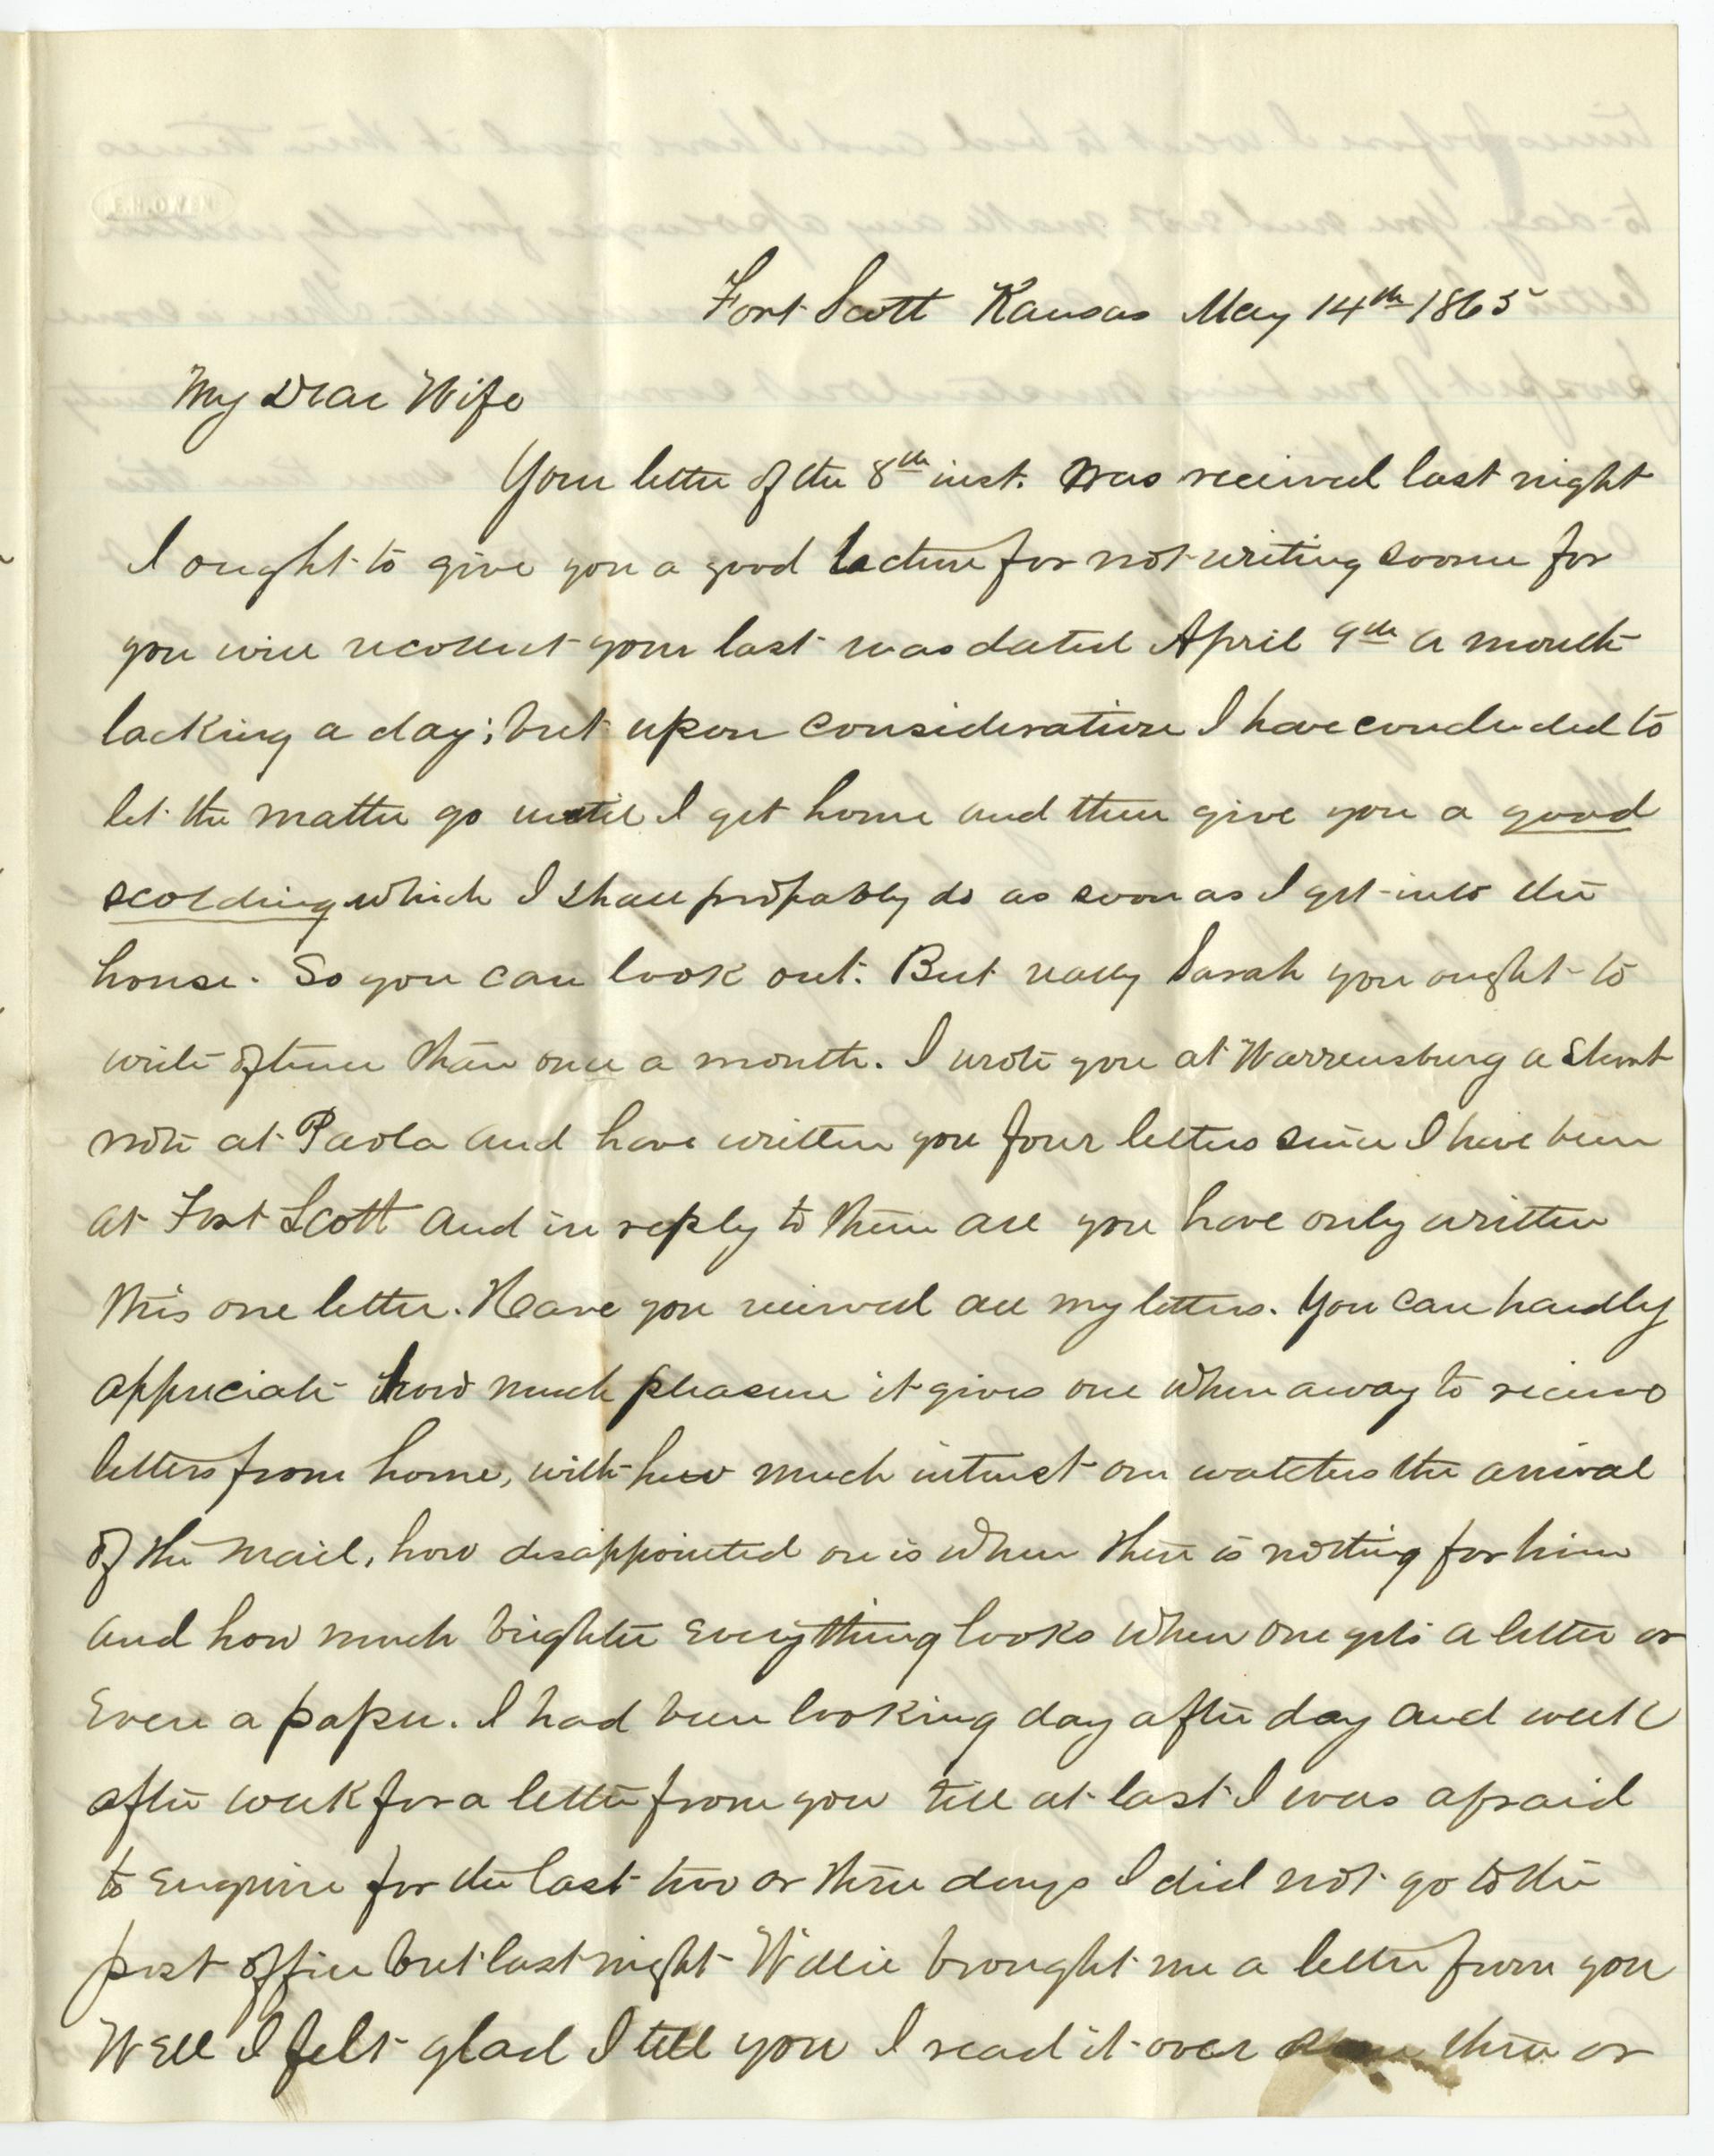 Fort Scott Kansas May 14th 1865
My Dear Wife
Your letter of the 8th inst. was received last night
I ought to give you a good lecture for not writing sooner for
you will recollect your last was dated April 9th a month
lacking a day; but upon consideration I have concluded to
let the matter go until I get home and then give you a good
scolding which I shall probably do as soon as I get into the
house. So you can look out. But really Sarah you ought to
write oftener than once a month. I wrote you at Warrensburg a short
note at Paola and have written you four letters since I have been
at Fort Scott and in reply to them all you have only written
this one letter. Have you received all my letters. You can hardly
appreciate how much pleasure it gives one when away to receive
letters from home, with how much interest one watches the arrival
of the mail, how disappointed one is when there is nothing for him
and how much brighter everything looks when one gets a letter or
even a paper. I had been looking day after day and week
after week for a letter from you till at last I was afraid
to enquire for the last two or three days I did not go to the
post office but last night Willie brought me a letter from you
Well I felt glad I tell you I read it over three or